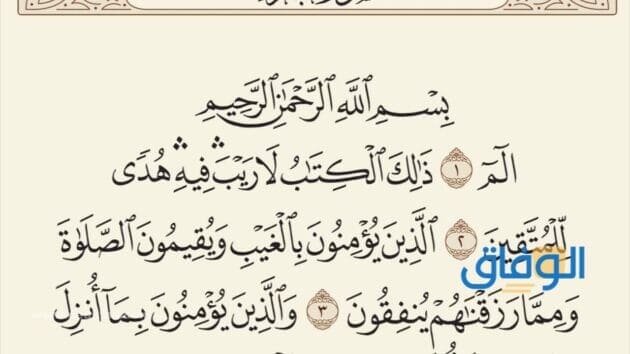 بِسْمِ ٱللَّهِ ٱلرَّحْمَٰنِ ٱلرَّحِيمِ
الٓمٓ ١ ذَٰلِكَ ٱلْكِتَٰبُ لَا رَيْبَ ۛ فِيهِ ۛ هُدًى
لِّلْمُتَّقِينَ ٢ ٱلَّذِينَ يُؤْمِنُونَ بِٱلْغَيْبِ وَيُقِيمُونَ ٱلصَّلَوٰةَ
الوفاق
وَمِمَّا رَزَقْنَٰهُمْ يُنفِقُونَ ٣ وَٱلَّذِينَ يُؤْمِنُونَ بِمَآ أُنزِلَ